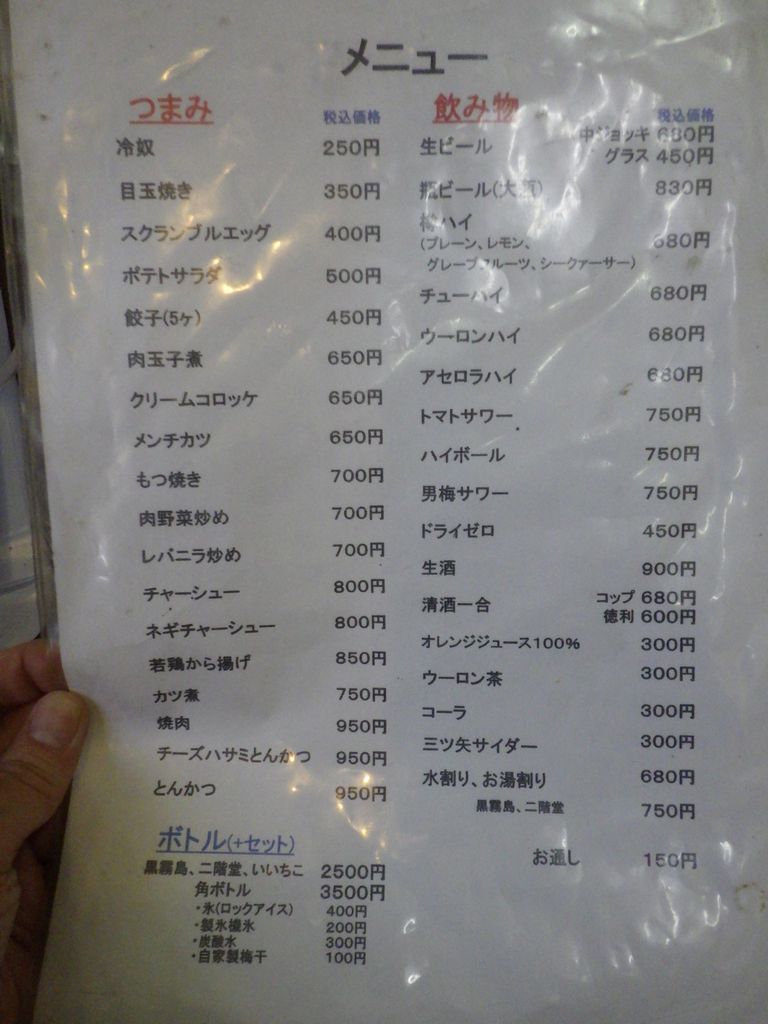 メニュー
つまみ 税込価格
冷奴 250円
目玉焼き 350円
スクランブルエッグ 400円
ポテトサラダ 500円
餃子(5ヶ) 450円
肉玉子煮 650円
クリームコロッケ 650円
メンチカツ 650円
もつ焼き 700円
肉野菜炒め 700円
レバニラ炒め 700円
チャーシュー 800円
ネギチャーシュー 800円
若鶏から揚げ 850円
カツ煮 750円
焼肉 950円
チーズハサミとんかつ 950円
とんかつ 950円
ボトル(+セット)
黒霧島、二階堂、いいちこ 2500円
角ボトル 3500円
・氷(ロックアイス) 400円
・製氷機氷 200円
・炭酸水 300円
・自家製梅干 100円
飲み物 税込価格
生ビール 中ジョッキ 680円
グラス 450円
瓶ビール(大瓶) 830円
樽ハイ 680円
(プレーン、レモン、
グレープフルーツ、シークァーサー)
チューハイ 680円
ウーロンハイ 680円
アセロラハイ 680円
トマトサワー 750円
ハイボール 750円
男梅サワー 750円
ドライゼロ 450円
生酒 900円
清酒一合 コップ 680円
徳利 600円
オレンジジュース100% 300円
ウーロン茶 300円
コーラ 300円
三ツ矢サイダー 300円
水割り、お湯割り 680円
黒霧島、二階堂 750円
お通し 150円